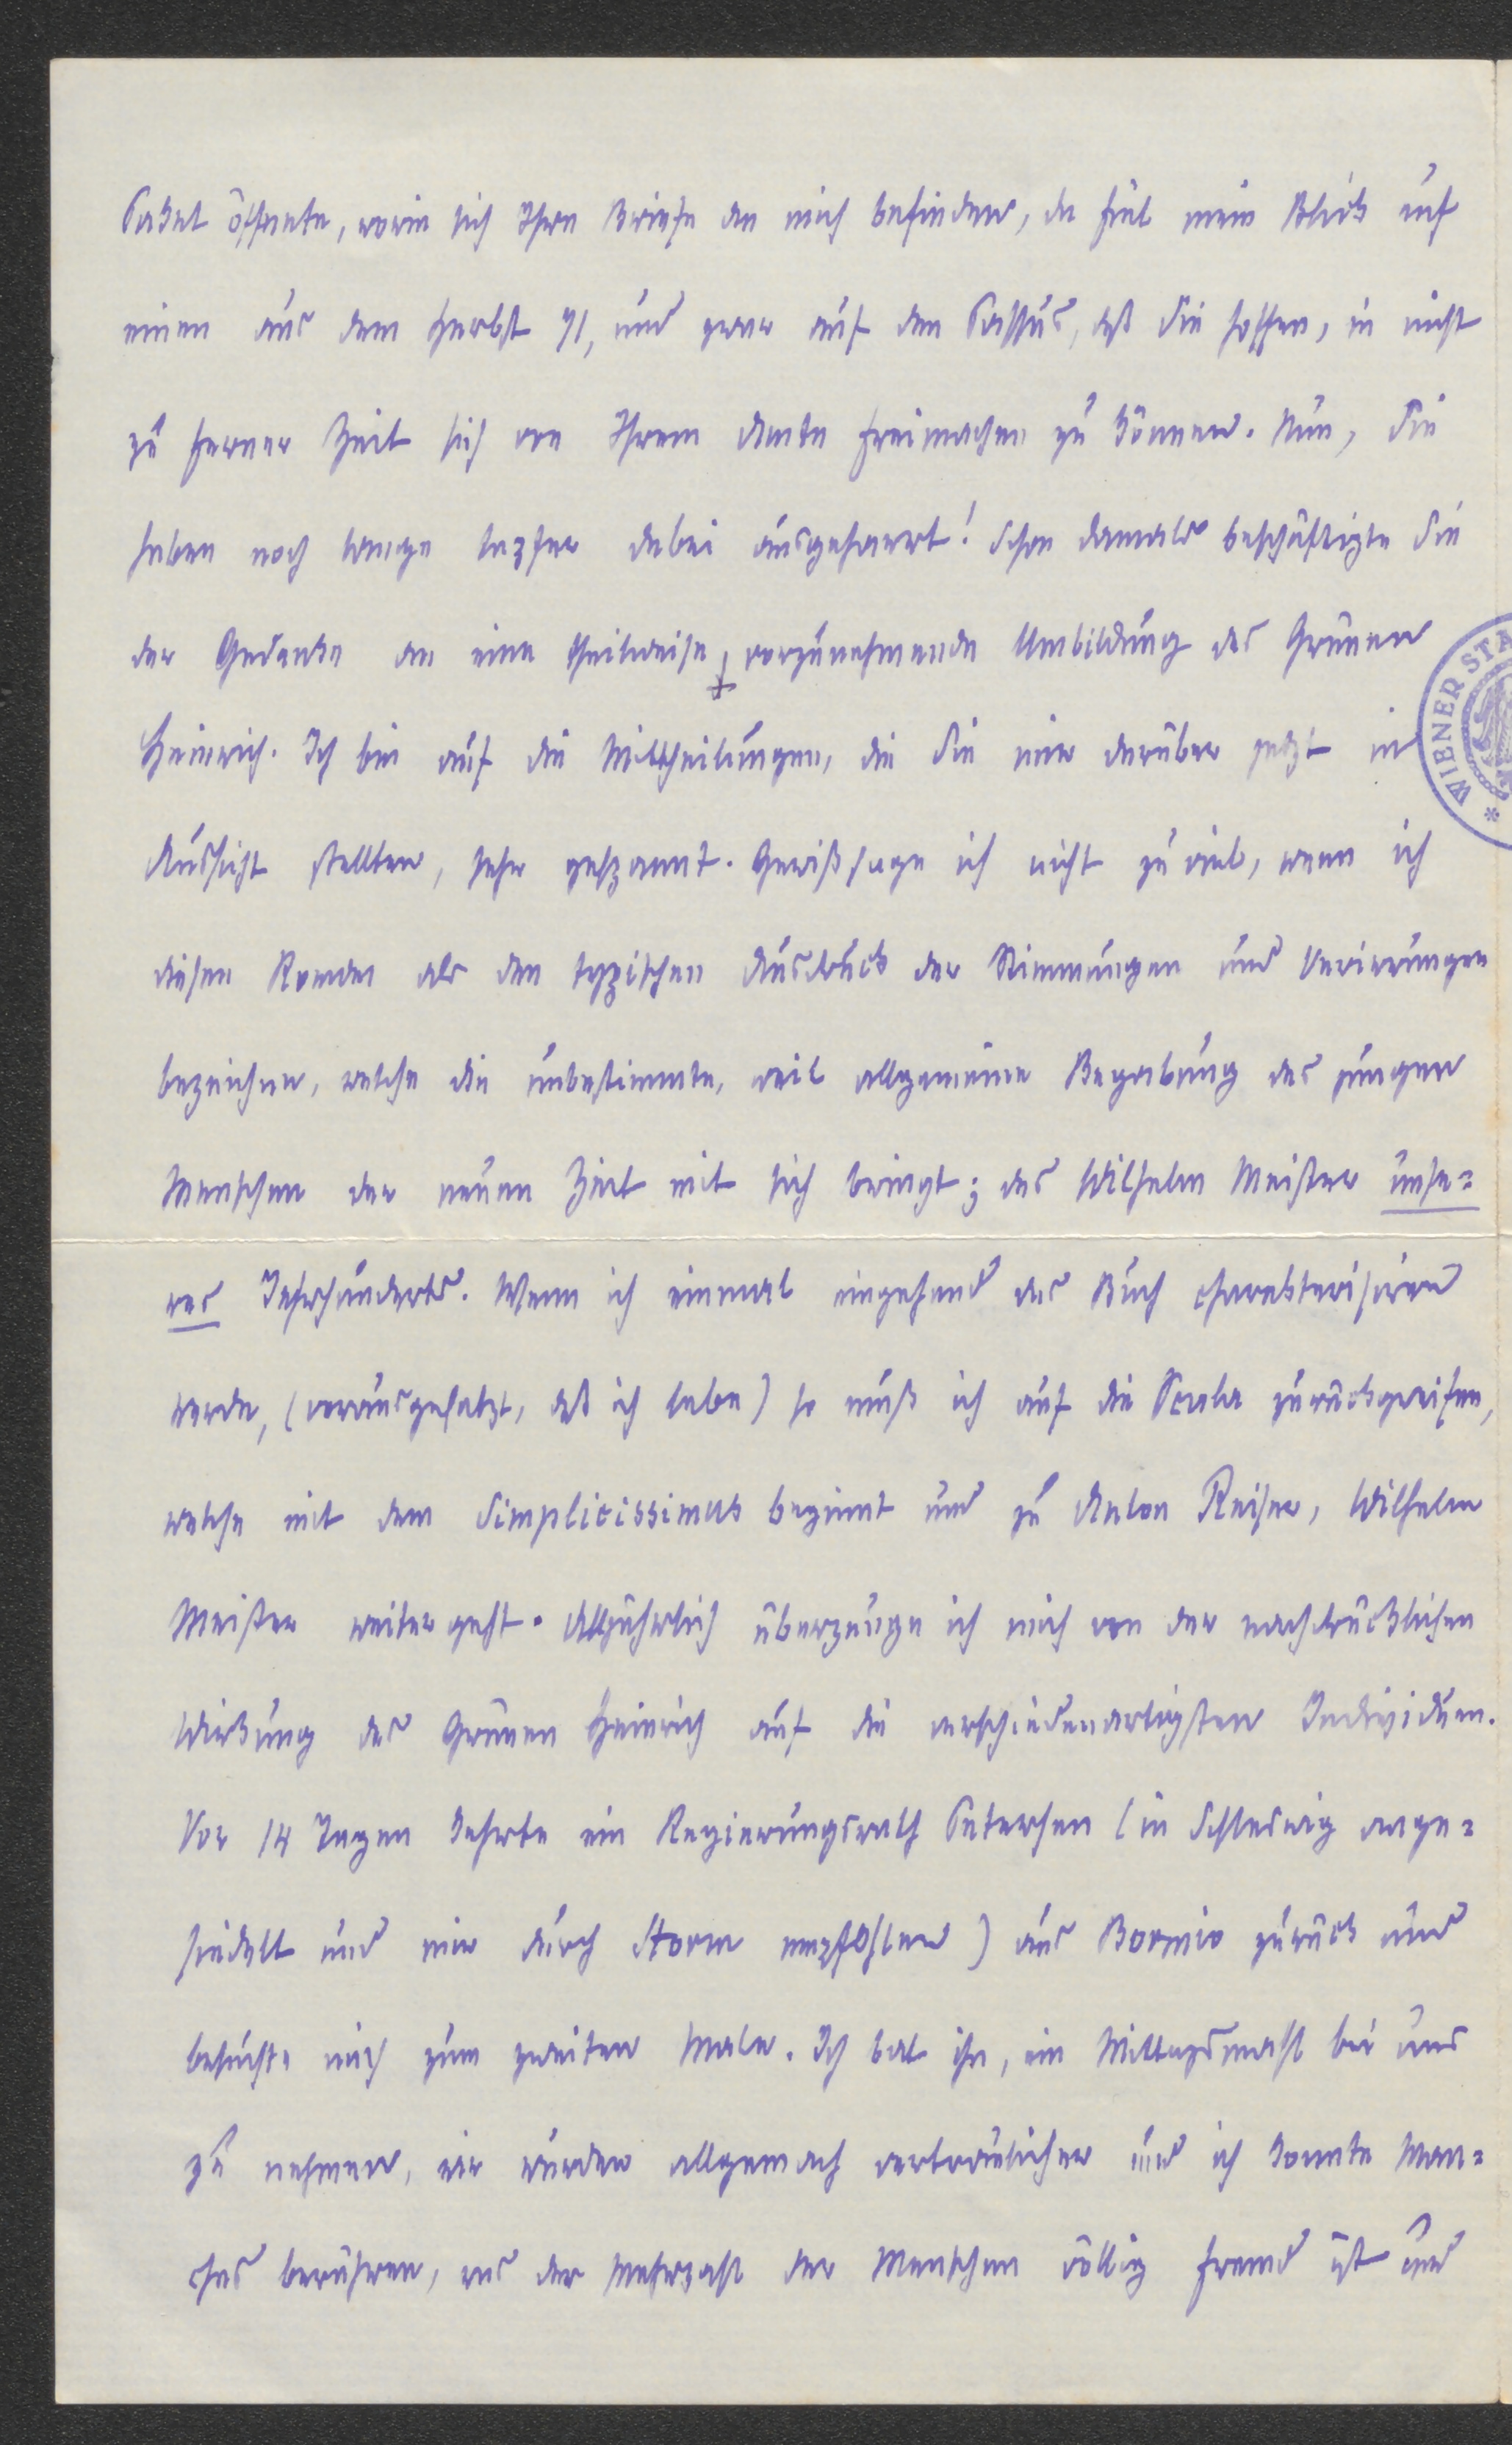 Paket öffnete, worin sich Ihre Briefe an mich befinden, da fiel mein Blick auf
einen aus dem Herbst 71, und zwar auf den Passus, daß Sie hoffen, in nicht
zu ferner Zeit sich von Ihrem Amte freimachen zu können. Nun, Sie
haben noch lange tapfer dabei ausgeharrt! Schon damals beschäftigte Sie
der Gedanke an eine theilweise vorzunehmende Umbildung des Grünen
Heinrich. Ich bin auf die Mittheilungen, die Sie mir darüber jetzt in
Aussicht stellten, sehr gespannt. Gewiß sage ich nicht zu viel, wenn ich
diesen Roman als den typischen Ausdruck der Stimmungen und Verirrungen
bezeichne, welche die unbestimmte, weil allgemeine Begabung des jungen
Menschen der neuen Zeit mit sich bringt; das Wilhelm Meister unse=
res Jahrhunderts. Wenn ich einmal eingehend das Buch charakterisiren
werde, (vorausgesetzt, daß ich lebe) so muß ich auf die Scala zurückgreifen,
welche mit dem Simplicissimus beginnt und zu Anton Reiser, Wilhelm
Meister weiter geht. Alljährlich überzeuge ich mich von der nachdrücklichen
Wirkung des Grünen Heinrich auf die verschiedenartigsten Individuen.
Vor 14 Tagen kehrte ein Regierungsrath Petersen (in Schleswig ange=
siedelt und mir durch Storm empfohlen) aus Bormio zurück und
besuchte mich zum zweiten Male. Ich bat ihn, ein Mittagsmahl bei uns
zu nehmen, wir wurden allgemach vertraulicher und ich konnte Man=
ches berühren, was der Mehrzahl der Menschen völlig fremd ist und
WIENER STA